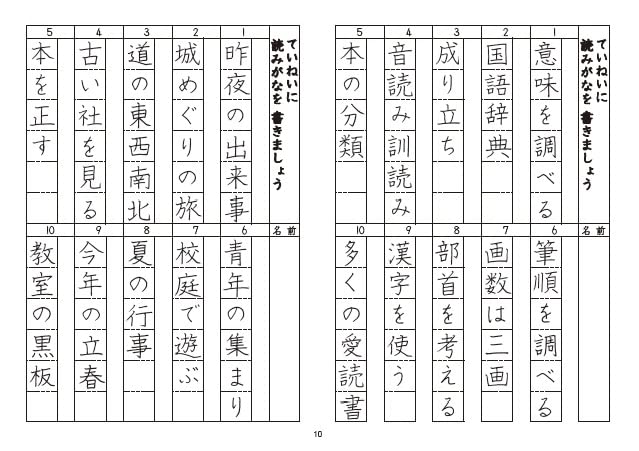 ていねいに
読みがなを 書きましょう
名前
1
意味を調べる
2
国語辞典
3
成り立ち
4
音読み訓読み
5
本の分類
6
筆順を調べる
7
画数は三画
8
部首を考える
9
漢字を使う
10
多くの愛読書
ていねいに
読みがなを 書きましょう
名前
1
昨夜の出来事
2
城めぐりの旅
3
道の東西南北
4
古い社を見る
5
本を正す
6
青年の集まり
7
校庭で遊ぶ
8
夏の行事
9
今年の立春
10
教室の黒板
10